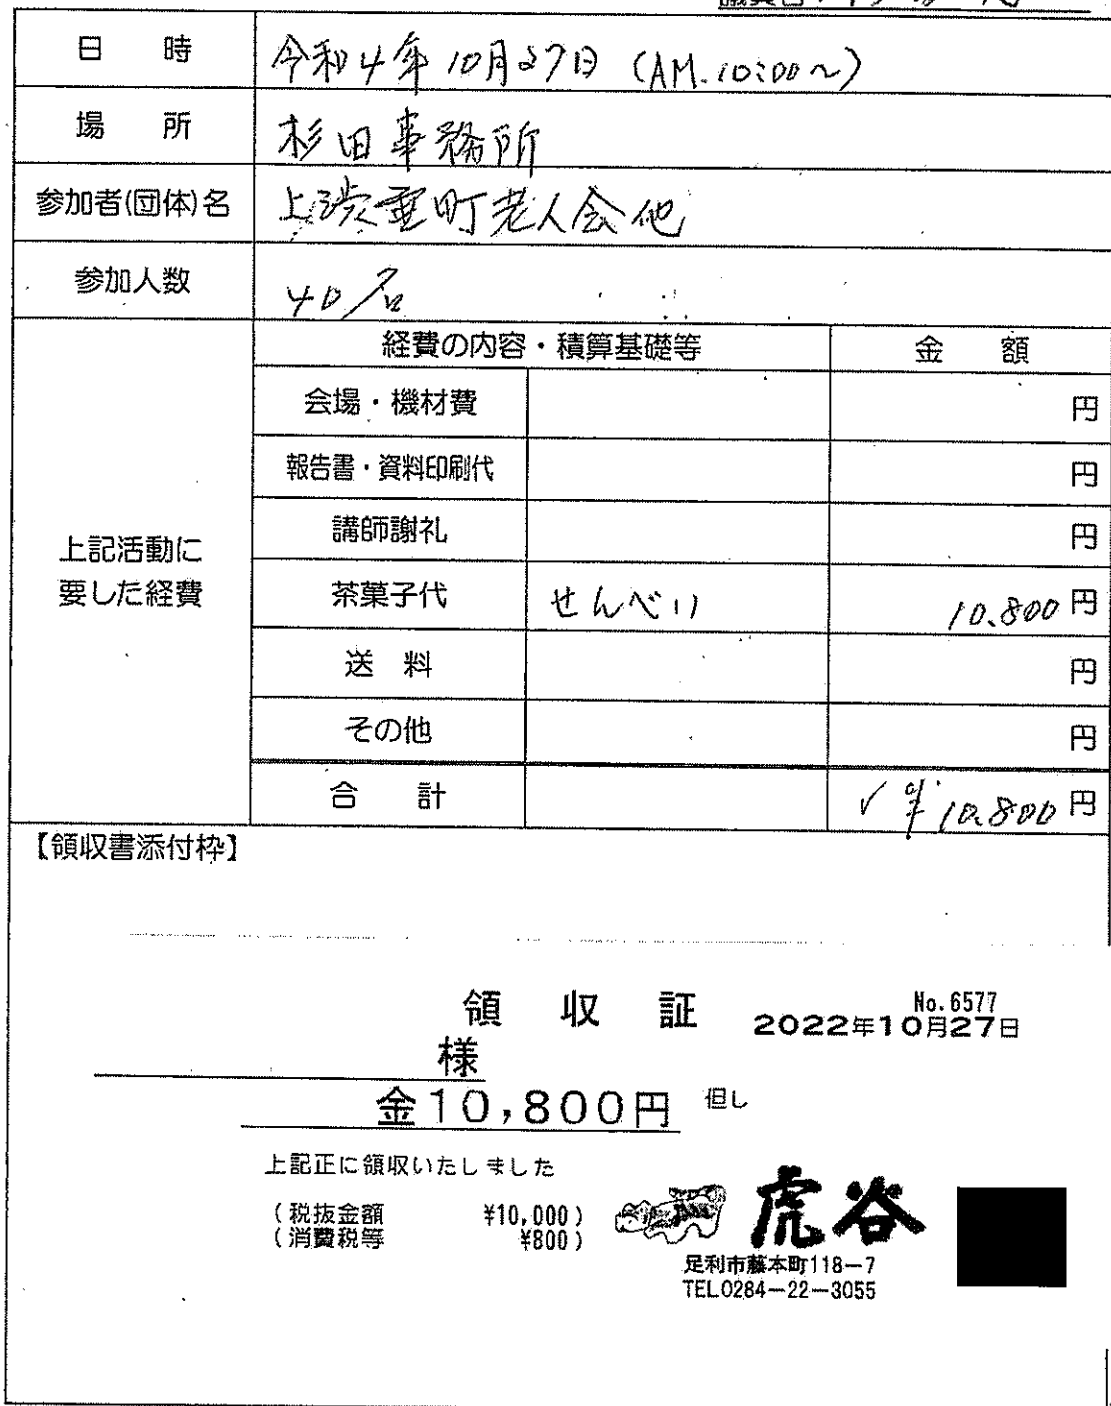 日 時 令和4年10月27日 (AM.10:00～)
場 所 杉田事務所
参加者(団体)名 上渋垂町老人会他
参加人数 40名
経費の内容・積算基礎等 金 額
会場・機材費 円
報告書・資料印刷代 円
講師謝礼 円
上記活動に
要した経費
茶菓子代 せんべい 10.800円
送 料 円
その他 円
合 計 ✓ ¥10.800円
【領収書添付枠】
領 収 証 No.6577
2022年10月27日
様
金10,800円 但し
上記正に領収いたしました
(税抜金額 ¥10,000)
(消費税等 ¥800)
虎谷
足利市藤本町118−7
TEL0284−22−3055